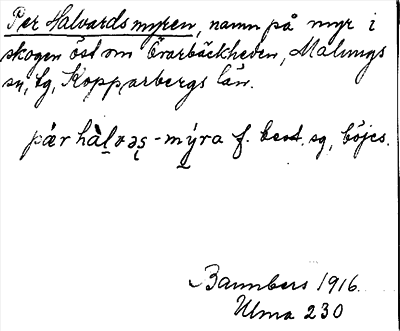 Per Halvardsmyren, namn på myr i
skogen öst om Örarbäckheden, Malungs
sn, tg, Kopparbergs län.
pǽr hàl̥vəs̥-mýra f. best. sg, böjes.
Bannbers 1916.
Ulma 230